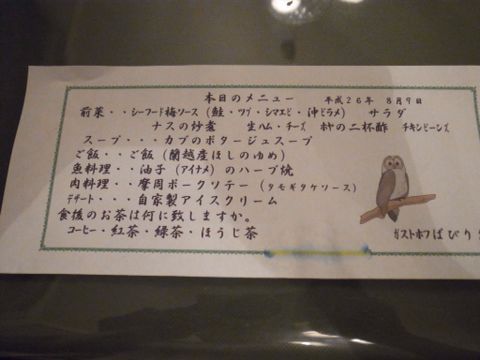 本日のメニュー 平成26年 8月9日
前菜・・シーフード梅ソース (鮭・ツブ・シマエビ・沖ドラメ) サラダ
ナスの炒煮 生ハム・チーズ ホヤの二杯酢 チキンビーンズ
スープ・・・カブのポタージュスープ
ご飯・・・ご飯 (蘭越産ほしのゆめ)
魚料理・・油子 (アイナメ) のハーブ焼
肉料理・・摩周ポークソテー (タモギタケソース)
デザート・・・自家製アイスクリーム
食後のお茶は何に致しますか。
コーヒー・紅茶・緑茶・ほうじ茶
ガストホフ ぱぴり